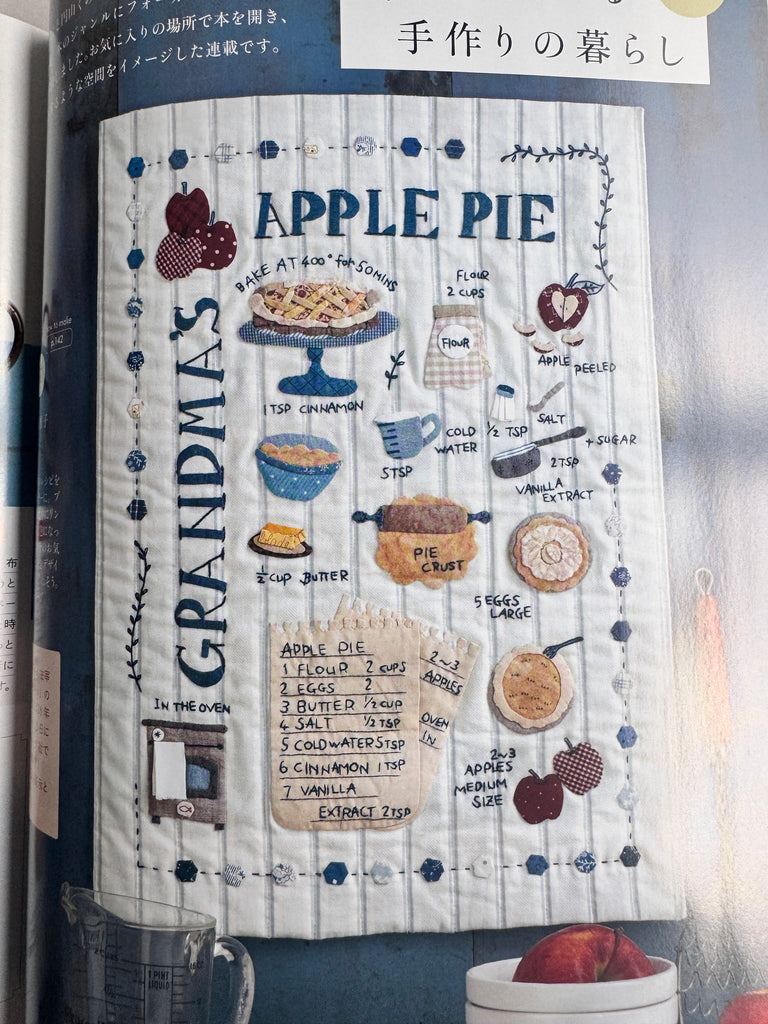 のジャンルにフォー
ました。お気に入りの場所で本を開き、
ような空間をイメージした連載です。
手作りの暮らし
APPLE PIE
GRANDMA'S
BAKE AT 400° for 50MINS
FLOUR
2 CUPS
FLOUR
APPLE PEELED
1 TSP CINNAMON
5TSP
COLD
WATER
1/2 TSP
SALT
+ SUGAR
2TSP
VANILLA
EXTRACT
1/2 CUP BUTTER
PIE
CRUST
5 EGGS
LARGE
APPLE PIE
1 FLOUR 2 CUPS
2 EGGS 2
3 BUTTER 1/2 CUP
4 SALT 1/2 TSP
5 COLD WATER 5TSP
6 CINNAMON 1TSP
7 VANILLA
EXTRACT 2TSP
2~3
APPLES
OVEN
IN
IN THE OVEN
2~3
APPLES
MEDIUM
SIZE
1 PINT
LIQUID